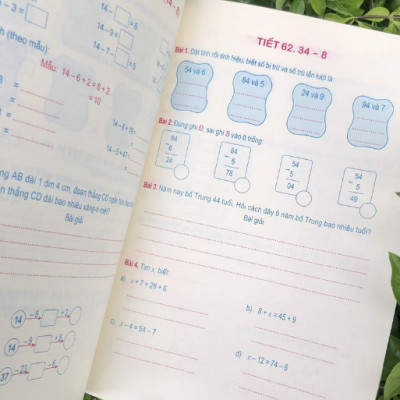 - 3 =
14 -
= 6
14 -
14 - 7 -
= 5
h (theo mẫu):
Mẫu: 14 - 6 + 2 = 8 + 2
= 10
14 - 8 + 15 =
14 - 5 + 41 =
ng AB dài 1 dm 4 cm, đoạn thẳng CD
n thẳng CD dài bao nhiêu xăng-ti-mét?
Bài giải
14
14
37
14 - 8
TIẾT 62. 34 - 8
Bài 1. Đặt tính rồi tính hiệu, biết số bị trừ và số trừ lần lượt là:
54 và 6
84 và 5
24 và 9
94 và 7
Bài 2. Đúng ghi Đ, sai ghi S vào ô trống:
84
6
24
84
6
78
54
5
04
54
5
49
Bài 3. Năm nay bố Trung 44 tuổi. Hỏi cách đây 9 năm bố Trung bao nhiêu tuổi?
Bài giải
Bài 4. Tìm x, biết:
a) x + 7 = 28 + 6
b) 8 + x = 45 + 9
c) x - 4 = 54 - 7
d) x - 12 = 74 - 6